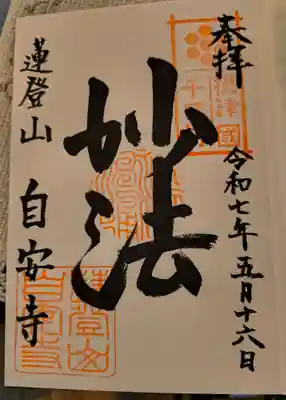 奉拝
令和七年五月十六日
妙法
蓮登山 自安寺